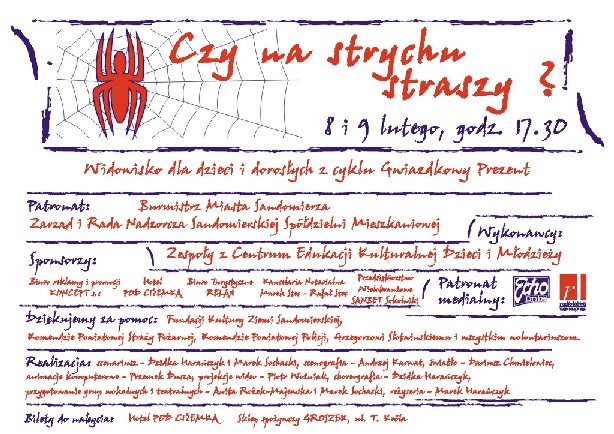 Czy na strychu
straszy ?
8 i 9 lutego, godz. 17.30
Widowisko dla dzieci i dorosłych z cyklu Gwiazdkowy Prezent
Patronat: Burmistrz Miasta Sandomierza
Zarząd i Rada Nadzorcza Sandomierskiej Spółdzielni Mieszkaniowej
Wykonawcy:
Zespoły z Centrum Edukacji Kulturalnej Dzieci i Młodzieży
Sponsorzy:
Biuro reklamy i promocji
KONCEPT s.c
Hotel
POD CIŻEMKĄ
Biuro Turystyczne
RELAX
Kancelaria Notarialna
Przedsiębiorstwo
Wielobranżowe
SAMBET
Patronat
medialny:
Echo
Dnia
Dziękujemy za pomoc: Fundacji Kultury Ziemi Sandomierskiej,
Komendzie Powiatowej Straży Pożarnej, Komendzie Powiatowej Policji, Grzegorzowi i wszystkim wolontariuszom.
Realizacja: scenariusz - Harańczyk i Marek Sochacki, scenografia - Andrzej Karnat, światło - Dariusz Chmielowiec,
animacje komputerowe - Przemek projekcje wideo - Piotr choreografia - Harańczyk,
przygotowanie grup wokalnych i teatralnych - Anita Rożek-Majewska i Marek Sochacki, reżyseria - Marek Harańczyk
Bilety do nabycia: Hotel POD CIŻEMKĄ Sklep spożywczy GROSZEK, ul. T. Króla